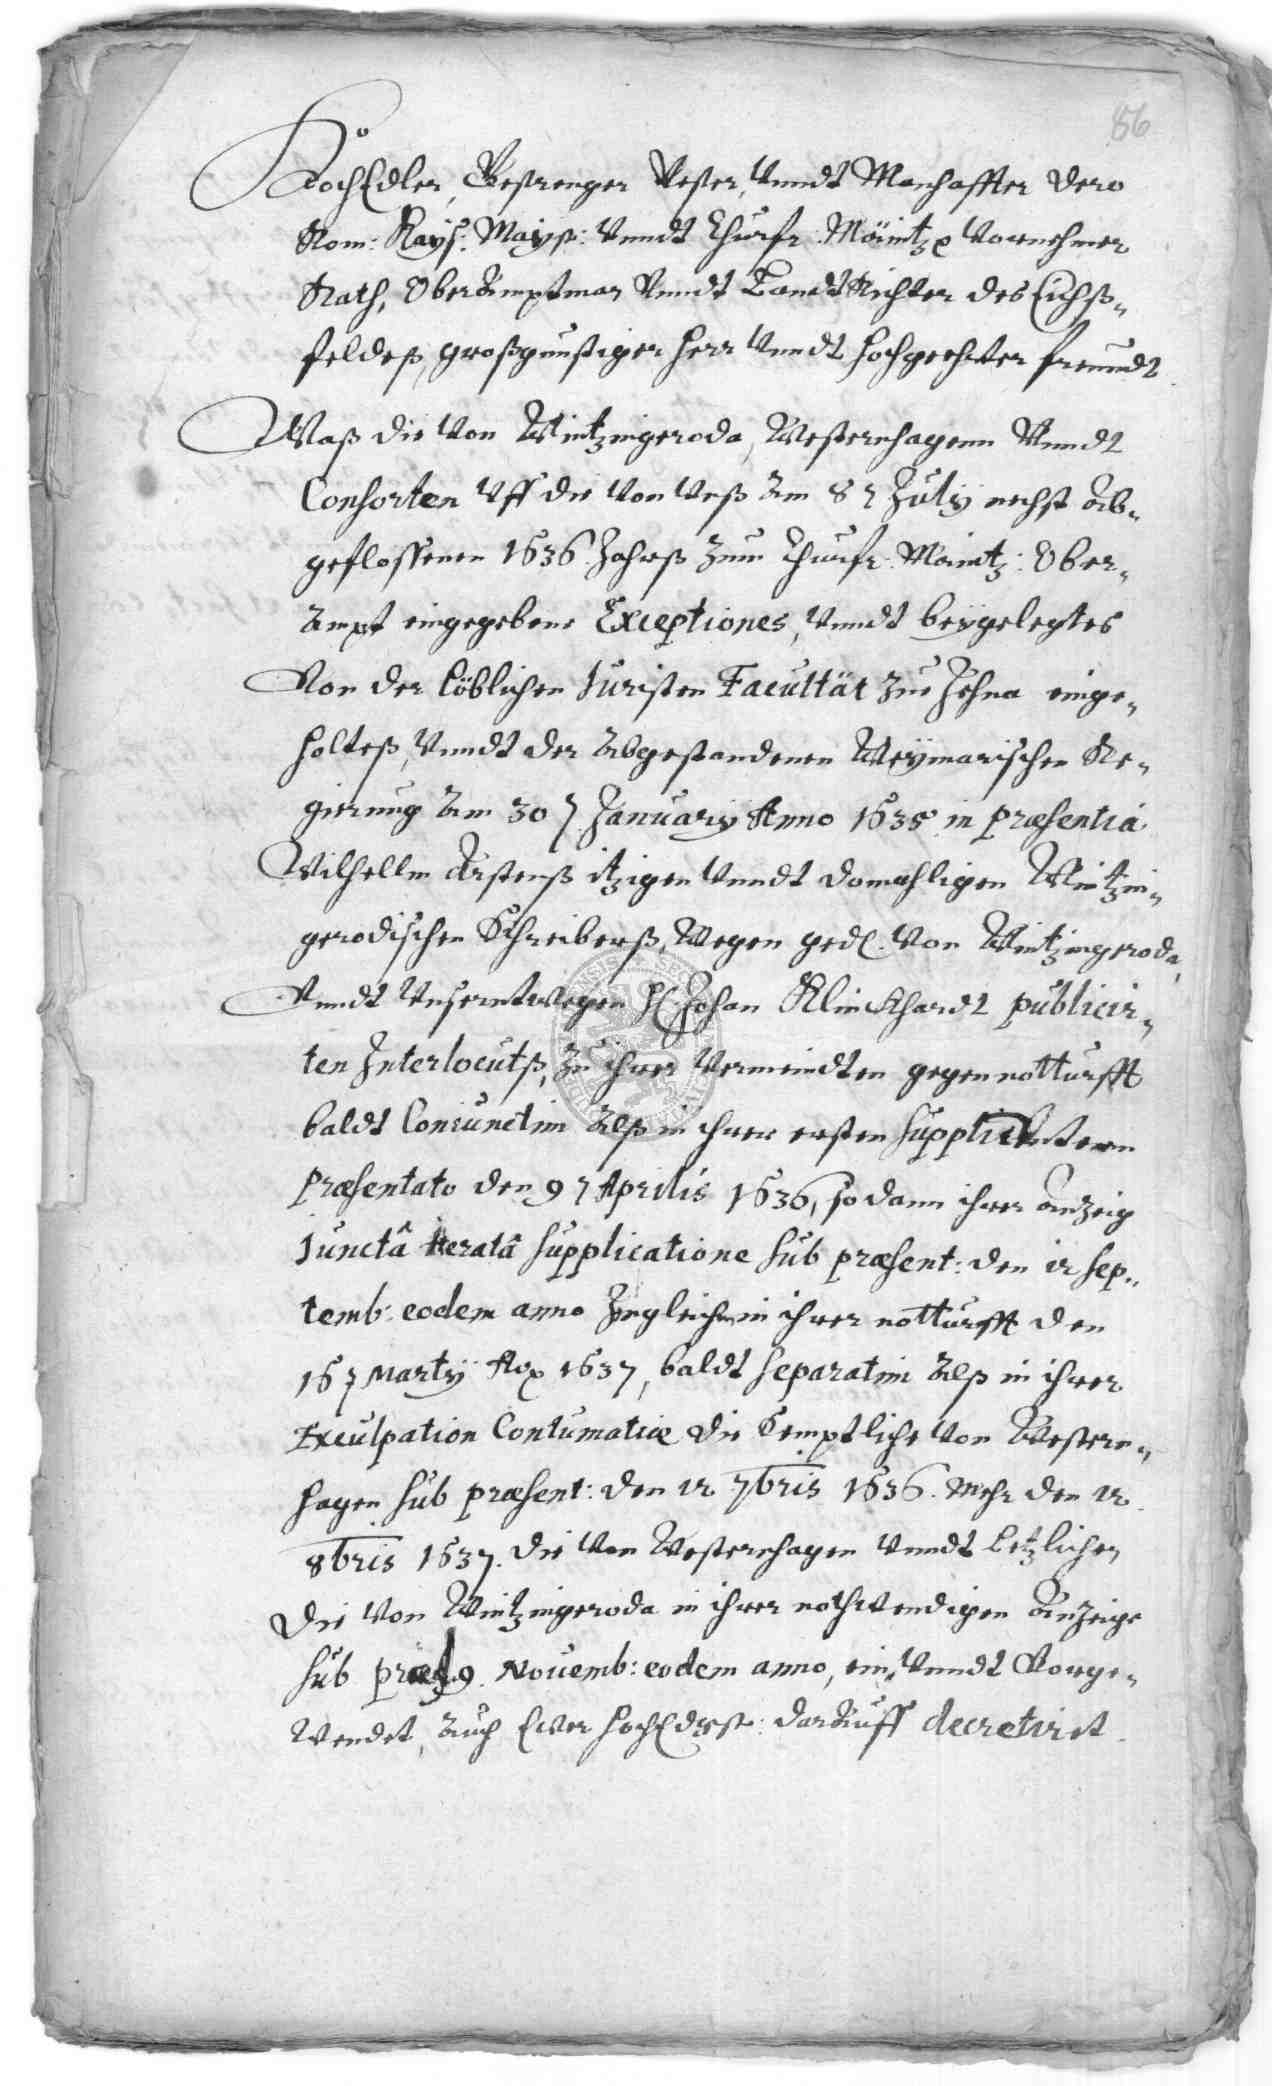 86
HochEdler, Gestrenger Vester, Vnndt Manhaffter dero
Rom: Kays: Mayst: Vnndt Churfr: Mäintz. Vornehmer
Rath, OberAmptman Vnndt LandtRichter des Eichß-
feldeß, großgunstiger Herr Vnndt hochgeehrter freundt
Waß die Von Wintzingeroda, Westernhagenn Vnndt
Consorten Vff die Von Vnß Am 8 t July nechst Ab-
geflossenen 1636 Jahrß Zum Churfr: Maintz: Ober-
Ampt eingegebene Exceptiones, Vnndt beÿgelegtes
Von der Löblichen Juristen Facultät Zue Jehna einge-
holteß, Vnndt der Abgestandenen Weÿmarischen Re-
gierung Am 30 t January Anno 1635 in præsentiâ
Wilhellm itzigen Vnndt domahligen Wintzin-
gerodischen Schreiberß, Wegen ged. Von Wintzingeroda,
Vnndt VnserntWegen H Johan Klinckhardt publicir-
ten Interlocutß, Zu ihrer Vermeindten gegennotturfft
baldt Coniunctim Alß in ihrer ersten
Præsentato den 9 t Aprilis 1636, so dann ihrer Anzeig
Junctâ Iteratâ supplicatione sub præsent: den 12 Sep-
temb: eodem anno Zugleich in ihrer notturfft den
16 t Martÿ Ao 1637, baldt separatim Alß in ihrer
Exculpation Contumatiæ die Semptliche Von Western-
hagen sub præsent: den 12 7bris 1636. Mehr den 12
8bris 1637. die Von Westernhagen Vnndt Letzlichen
die Von Wintzingeroda in ihrer nothwendigen Anzeige
sub præs. 9. Nouemb: eodem anno, ein, Vnndt Vorge-
Wendet, Auch Ewer HochEdgst: darAuff decretiret